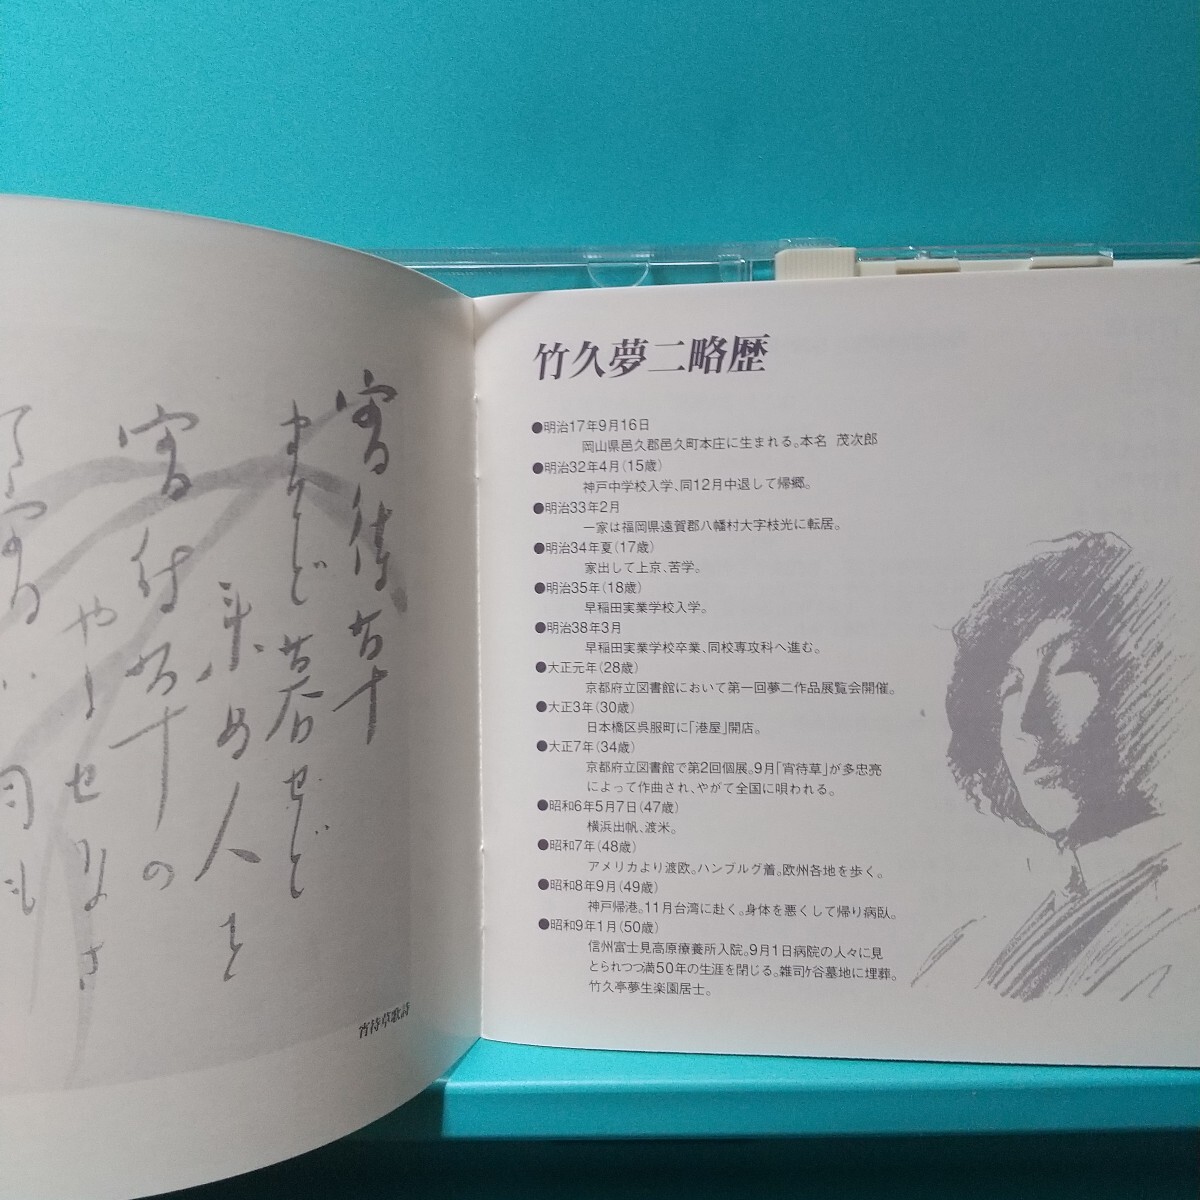 宵待草
まてど暮せど
来ぬ人を
宵待草の
やるせなさ
宵待草歌詩
竹久夢二略歴
●明治17年9月16日
岡山県邑久郡邑久町本庄に生まれる。本名 茂次郎
●明治32年4月(15歳)
神戸中学校入学、同12月中退して帰郷。
●明治33年2月
一家は福岡県遠賀郡八幡村大字枝光に転居。
●明治34年夏(17歳)
家出して上京、苦学。
●明治35年(18歳)
早稲田実業学校入学。
●明治38年3月
早稲田実業学校卒業、同校専攻科へ進む。
●大正元年(28歳)
京都府立図書館において第一回夢二作品展覧会開催。
●大正3年(30歳)
日本橋区呉服町に「港屋」開店。
●大正7年(34歳)
京都府立図書館で第2回個展。9月「宵待草」が多忠亮
によって作曲され、やがて全国に唄われる。
●昭和6年5月7日(47歳)
横浜出帆、渡米。
●昭和7年(48歳)
アメリカより渡欧。ハンブルグ着。欧州各地を歩く。
●昭和8年9月(49歳)
神戸帰港。11月台湾に赴く。身体を悪くして帰り病臥。
●昭和9年1月(50歳)
信州富士見高原療養所入院。9月1日病院の人々に見
とられつつ満50年の生涯を閉じる。雑司ケ谷墓地に埋葬。
竹久亭夢生楽園居士。